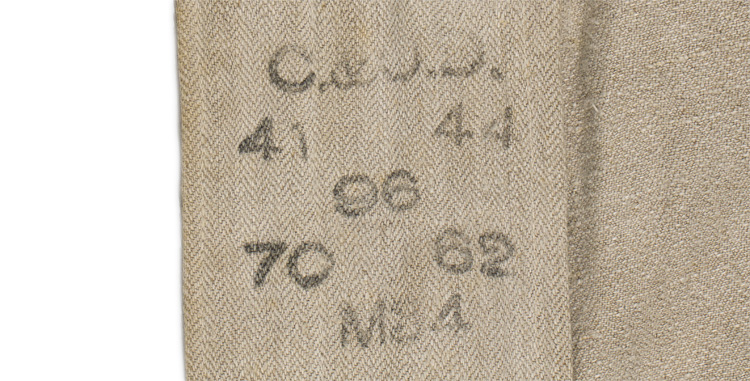 41 44
96
70 62
M34